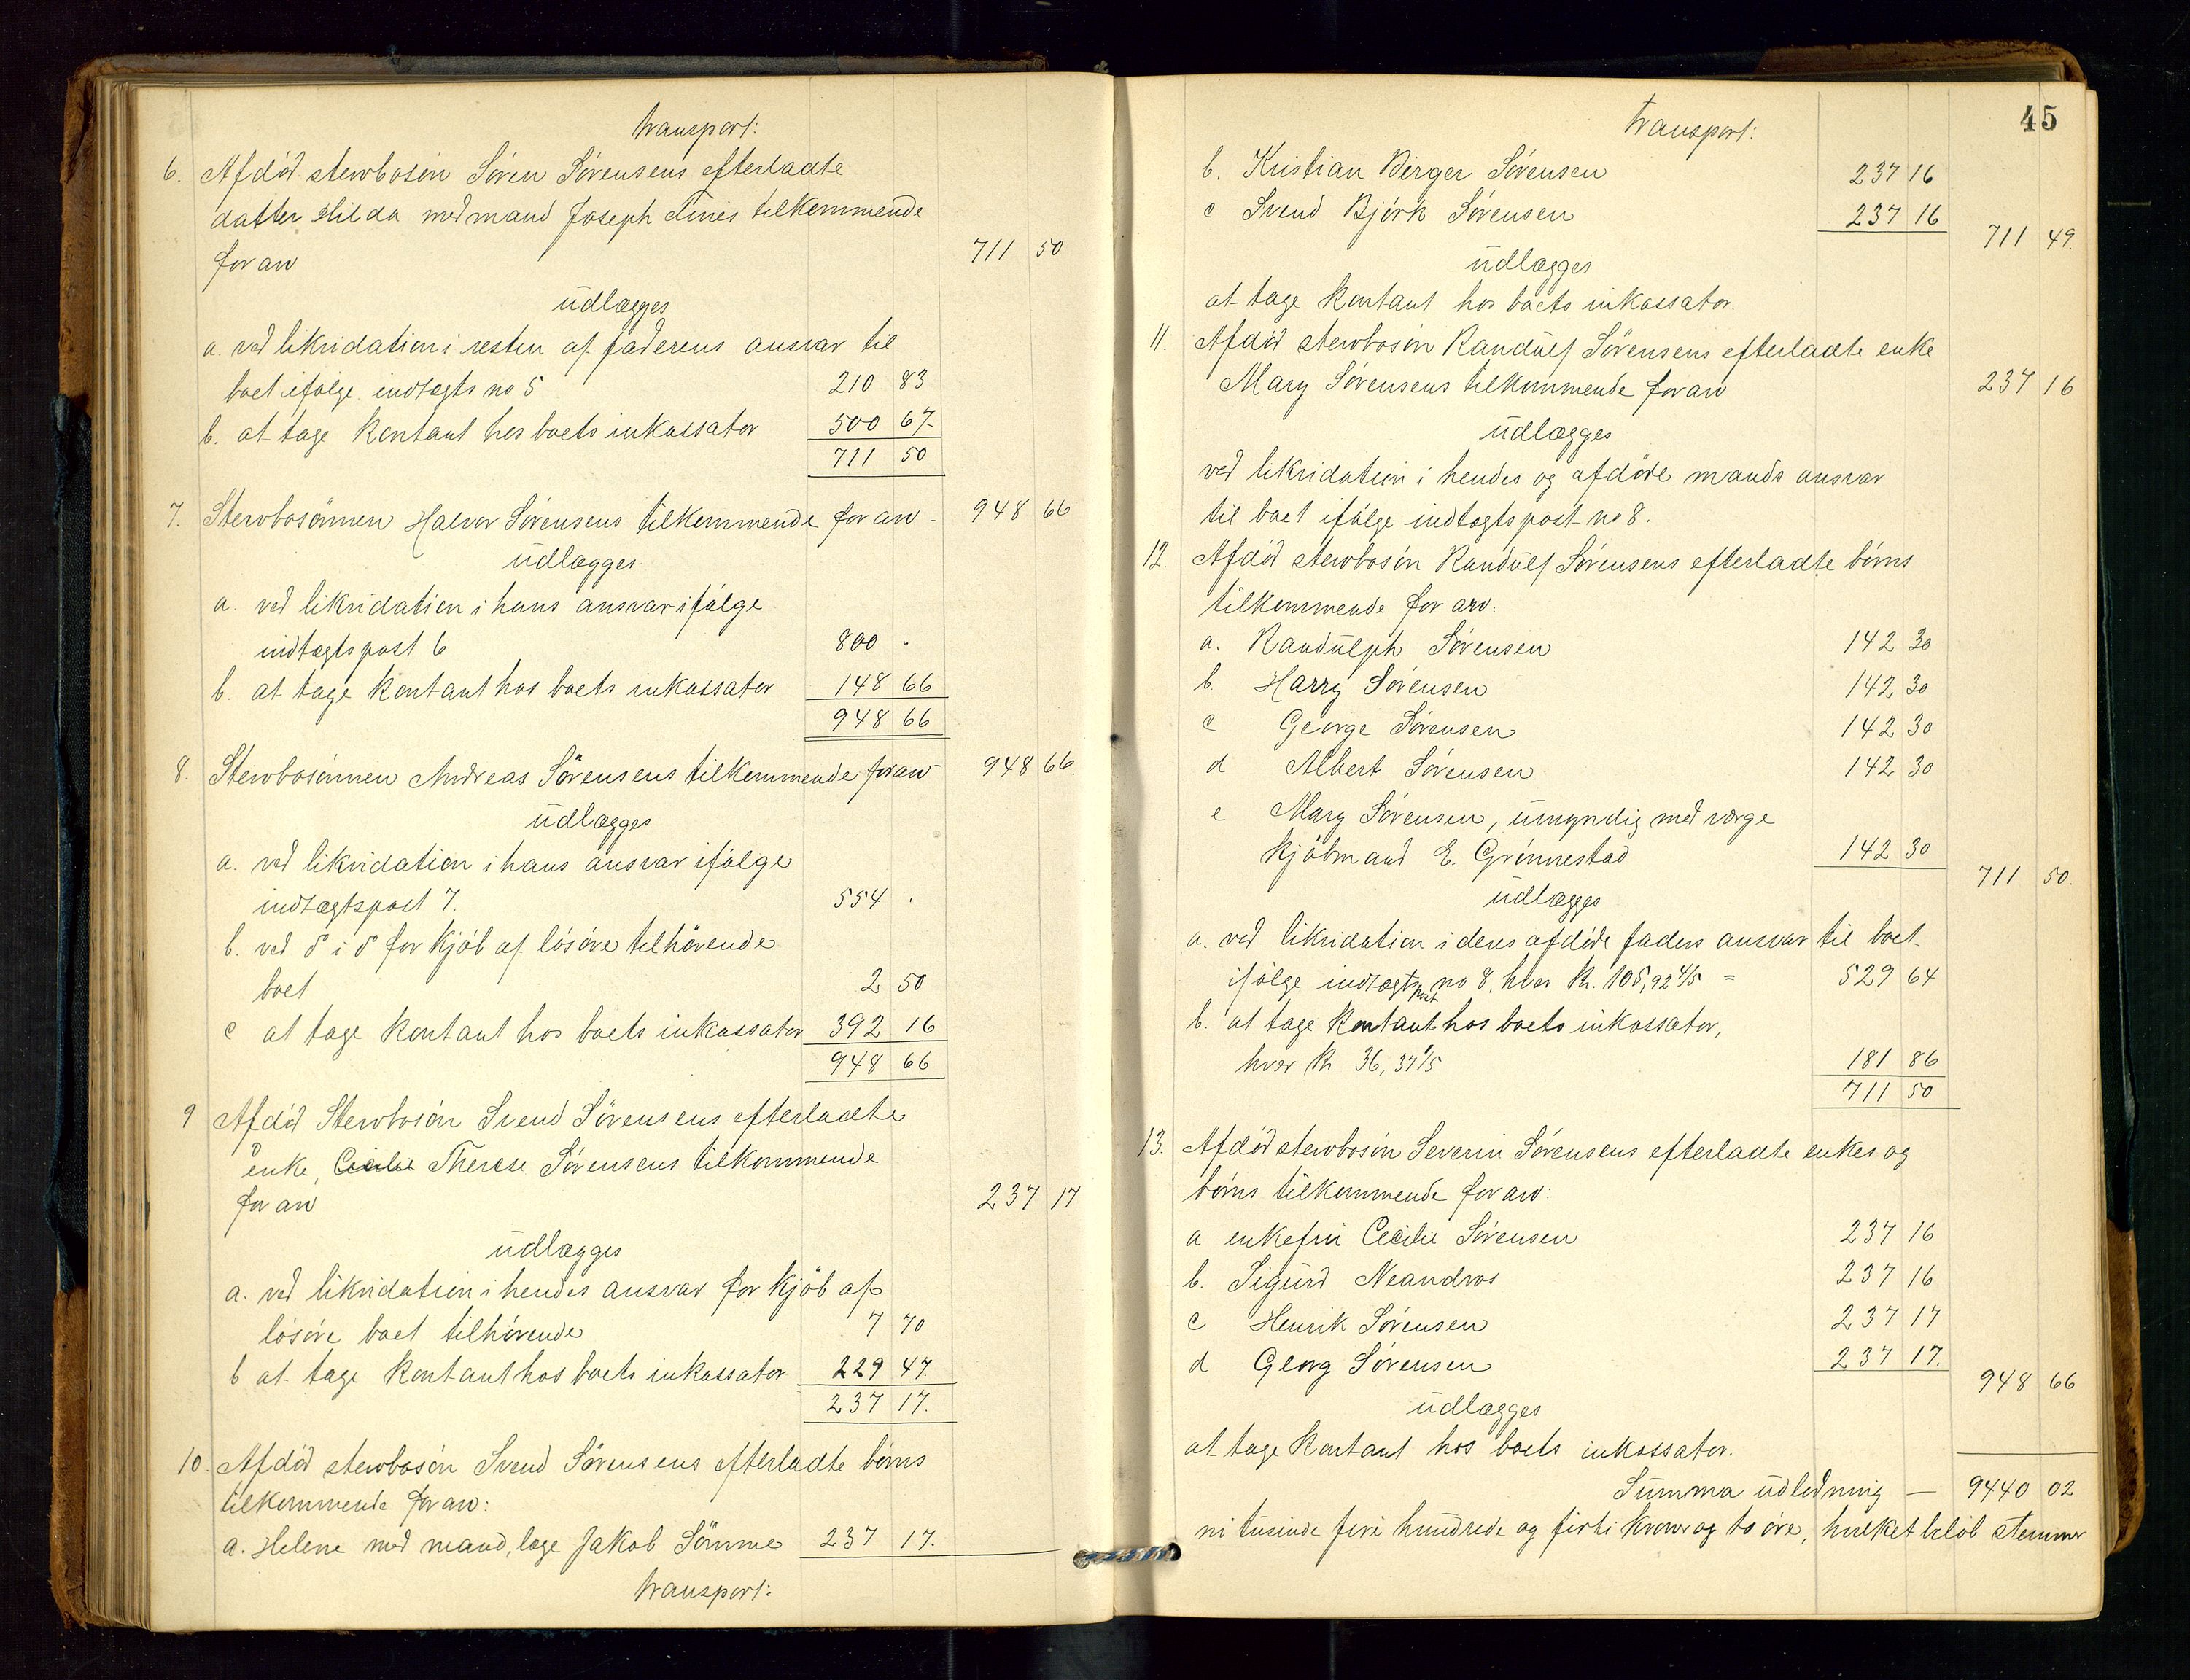 transport:
6. Afdöd stervbosön Sören Sörensens efterladte
datter Hilda med mand Joseph Tinis tilkommende
for arv 711 50
udlægges
a. ved likvidation i resten af faderens ansvar til
boet ifölge indtægts no 5 210 83
b. at tage kontant hos boets inkassator 500 67
711 50
7. Stervbosönnen Halvor Sörensens tilkommende for arv - 948 66
udlægges
a. ved likvidation i hans ansvar ifölge
indtægtspost 6 800 "
b. at tage kontant hos boets inkassator 148 66
948 66
8. Stervbosönnen Andreas Sörensens tilkommende for arv - 948 66.
udlægges
a. ved likvidation i hans ansvar ifölge
indtægtspost 7. 554 .
b. ved do i do for kjöb af lösöre tilhörende
boet 2 50
c at tage kontant hos boets inkassator 392 16
948 66
9 Afdöd Stervbosön Svend Sörensens efterladte
enke, Cecilie Therese Sörensens tilkommende
for arv 237 17
udlægges
a. ved likvidation i hendes ansvar for kjöb af
lösöre boet tilhörende 7 70
b at tage kontant hos boets inkassator 229 47.
237 17.
10. Afdöd stervbosön Svend Sörensens efterladte börns
tilkommende for arv:
a. Helene med mand, læge Jakob Sömme 237 17.
transport:
45
transport:
b. Kristian Birger Sörensen 237 16
c Svend Björk Sörensen 237 16
711 49.
udlægges
at tage kontant hos boets inkassator.
11. Afdöd stervbosön Randulf Sörensens efterladte enke
Mary Sörensens tilkommende for arv 237 16
udlægges
ved likvidation i hendes og afdöde mands ansvar
til boet ifölge indtægtspost no 8.
12. Afdöd stervbosön Randulf Sörensens efterladte börns
tilkommende for arv:
a. Randulph Sörensen 142 30
b. Harry Sörensen 142 30
c George Sörensen 142 30
d Albert Sörensen 142 30
e Mary Sörensen, umyndig med værge
kjöbmand E. Grönnestad 142 30
711 50.
udlægges
a. ved likvidation i deres afdöde faders ansvar til boet
ifölge indtægtspost no 8, hver Kr. 105,92 4/5 = 529 64
b. at tage kontant hos boets inkassator,
hver Kr. 36,37 1/5 181 86
711 50
13. Afdöd stervbosön Severin Sörensens efterladte enkes og
börns tilkommende for arv:
a enkefru Cecilie Sörensen 237 16
b. Sigurd Neandros 237 16
c Henrik Sörensen 237 17
d Georg Sörensen 237 17.
948 66
udlægges
at tage kontant hos boets inkassator.
Summa udlodning — 9440 02
ni tusinde fire hundrede og firti kroner og to öre, hvilket belöb stemmer